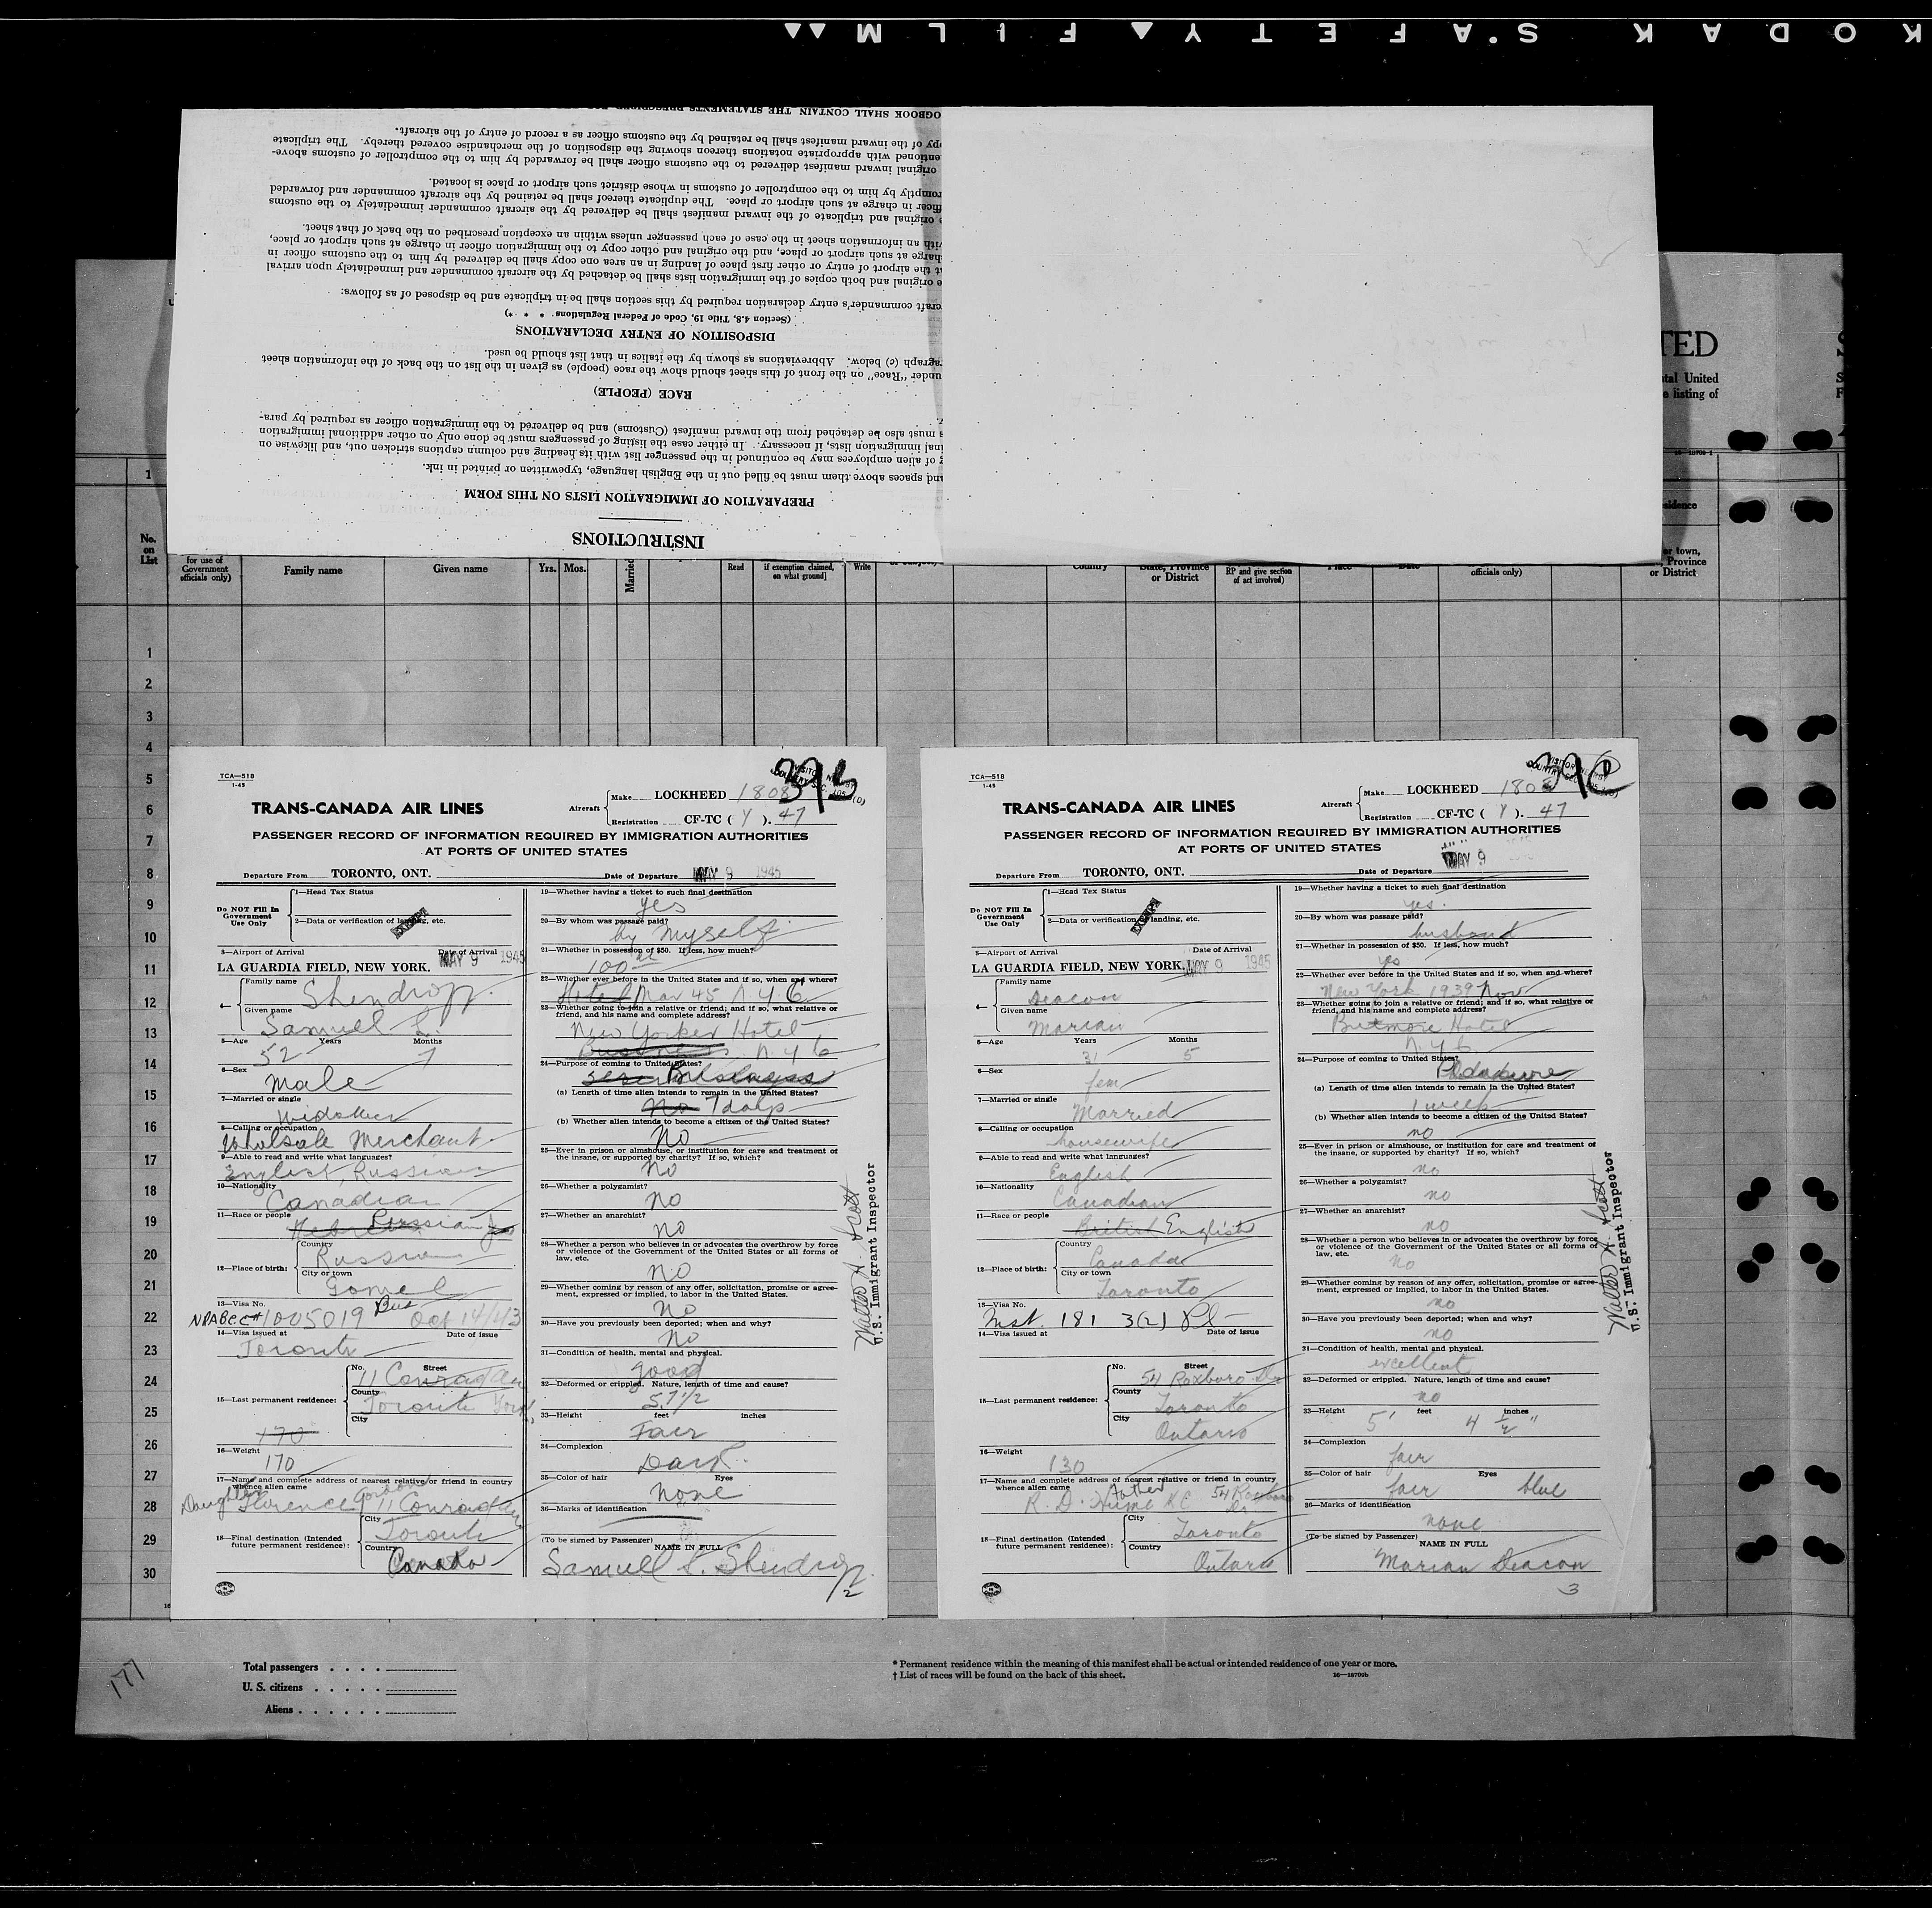 KODAK SAFETY FILM
OGBOOK SHALL CONTAIN THE STATEMENTS PRESCRIBED
py of the inward manifest shall be retained by the customs officer as a record of entry of the aircraft.
entioned with appropriate notations thereon showing the disposition of the merchandise covered thereby. The triplicate
original inward manifest delivered to the customs officer shall be forwarded by him to the comptroller of customs above-
romptly by him to the comptroller of customs in whose district such airport or place is located.
fficer in charge at such airport or place. The duplicate thereof shall be retained by the aircraft commander and forwarded
e original and triplicate of the inward manifest shall be delivered by the aircraft commander immediately to the customs
ith an information sheet in the case of each passenger unless within an exception prescribed on the back of that sheet.
harge at such airport or place, and the original and other copy to the immigration officer in charge at such airport or place,
t the airport of entry or other first place of landing in an area one copy shall be delivered by him to the customs officer in
e original and both copies of the immigration lists shall be detached by the aircraft commander and immediately upon arrival
craft commander's entry declaration required by this section shall be in triplicate and be disposed of as follows:
(Section 4.8, Title 19, Code of Federal Regulations. * * *)
DISPOSITION OF ENTRY DECLARATIONS
agraph (c) below. Abbreviations as shown by the italics in that list should be used.
under "Race" on the front of this sheet should show the race (people) as given in the list on the back of the information sheet
RACE (PEOPLE)
s must also be detached from the inward manifest (Customs) and be delivered to the immigration officer as required by para-
inal immigration lists, if necessary. In either case the listing of passengers must be done only on other additional immigration
g of alien employees may be continued in the passenger list with its heading and column captions stricken out, and likewise on
and spaces above them must be filled out in the English language, typewritten or printed in ink.
PREPARATION OF IMMIGRATION LISTS ON THIS FORM
INSTRUCTIONS
TED
tal United
e listing of
1
No. on List
for use of Government officials only)
Family name
Given name
Yrs. Mos.
Married
Read
if exemption claimed, on what ground]
Write
Country
State, Province or District
RP and give section of act involved)
Place
Date
officials only)
or town,
, Province
or District
1
2
3
4
5
6
7
8
9
10
11
12
13
14
15
16
17
18
19
20
21
22
23
24
25
26
27
28
29
30
TCA—518
1-45
TRANS-CANADA AIR LINES
Aircraft
Make LOCKHEED 1808
Registration CF-TC ( Y ). 47
PASSENGER RECORD OF INFORMATION REQUIRED BY IMMIGRATION AUTHORITIES
AT PORTS OF UNITED STATES
Departure From TORONTO, ONT. Date of Departure MAY 9 1945
Do NOT Fill In Government Use Only
1—Head Tax Status
2—Data or verification of landing, etc.
EXEMPT
3—Airport of Arrival Date of Arrival
LA GUARDIA FIELD, NEW YORK. MAY 9 1945
4— Family name
Given name
Samuel S.
5—Age Years Months
52 7
6—Sex
Male
7—Married or single
Widower
8—Calling or occupation
Wholsale Merchant
9—Able to read and write what languages?
English, Russian
10—Nationality
Canadian
11—Race or people
Hebrew Russian
12—Place of birth: Country
Russia
City or town
Gomel
13—Visa No.
1005019 Oct 14/43
14—Visa issued at Date of issue
Toronto
15—Last permanent residence: No. Street
11 Conrad Ave
County
Toronto York
City
170
16—Weight
170
17—Name and complete address of nearest relative or friend in country
whence alien came
Daughter Florence Gordon 11 Conrad Ave
18—Final destination (Intended future permanent residence): City
Toronto
Country
Canada
19—Whether having a ticket to such final destination
yes
20—By whom was passage paid?
by Myself
21—Whether in possession of $50. If less, how much?
100
22—Whether ever before in the United States and if so, when and where?
Hotel Mar 45 N.Y.C.
23—Whether going to join a relative or friend; and if so, what relative or
friend, and his name and complete address?
New Yorker Hotel
Business N.Y.C
24—Purpose of coming to United States?
Business
(a) Length of time alien intends to remain in the United States?
No 7 days
(b) Whether alien intends to become a citizen of the United States?
No
25—Ever in prison or almshouse, or institution for care and treatment of
the insane, or supported by charity? If so, which?
No
26—Whether a polygamist?
No
27—Whether an anarchist?
No
28—Whether a person who believes in or advocates the overthrow by force
or violence of the Government of the United States or all forms of
law, etc.
No
29—Whether coming by reason of any offer, solicitation, promise or agree-
ment, expressed or implied, to labor in the United States.
No
30—Have you previously been deported; when and why?
No
31—Condition of health, mental and physical.
good
32—Deformed or crippled. Nature, length of time and cause?
5.7 1/2
33—Height feet inches
Fair
34—Complexion
Dark
35—Color of hair Eyes
none
36—Marks of identification
(To be signed by Passenger) NAME IN FULL
2
Walter A. Scott
U.S. Immigrant Inspector
TCA—518
1-45
TRANS-CANADA AIR LINES
Aircraft
Make LOCKHEED 1808
Registration CF-TC ( Y ). 47
PASSENGER RECORD OF INFORMATION REQUIRED BY IMMIGRATION AUTHORITIES
AT PORTS OF UNITED STATES
Departure From TORONTO, ONT. Date of Departure MAY 9 1945
Do NOT Fill In Government Use Only
1—Head Tax Status
2—Data or verification of landing, etc.
EXEMPT
3—Airport of Arrival Date of Arrival
LA GUARDIA FIELD, NEW YORK. MAY 9 1945
4— Family name
Deacon
Given name
Marian
5—Age Years Months
31 5
6—Sex
fem
7—Married or single
Married
8—Calling or occupation
housewife
9—Able to read and write what languages?
English
10—Nationality
Canadian
11—Race or people
British English
12—Place of birth: Country
Canada
City or town
Toronto
13—Visa No.
Inst. 181 3(2)
14—Visa issued at Date of issue
15—Last permanent residence: No. Street
54 Roxboro Dr
County
Toronto
City
Ontario
16—Weight
130
17—Name and complete address of nearest relative or friend in country
whence alien came
R. D. Hume KC father 54 Roxboro Dr
18—Final destination (Intended future permanent residence): City
Toronto
Country
Ontario
19—Whether having a ticket to such final destination
yes.
20—By whom was passage paid?
husband
21—Whether in possession of $50. If less, how much?
yes
22—Whether ever before in the United States and if so, when and where?
New York 1939 Nov
23—Whether going to join a relative or friend; and if so, what relative or
friend, and his name and complete address?
Biltmore Hotel
N.Y.C.
24—Purpose of coming to United States?
Pleasure
(a) Length of time alien intends to remain in the United States?
1 week
(b) Whether alien intends to become a citizen of the United States?
no
25—Ever in prison or almshouse, or institution for care and treatment of
the insane, or supported by charity? If so, which?
no
26—Whether a polygamist?
no
27—Whether an anarchist?
no
28—Whether a person who believes in or advocates the overthrow by force
or violence of the Government of the United States or all forms of
law, etc.
no
29—Whether coming by reason of any offer, solicitation, promise or agree-
ment, expressed or implied, to labor in the United States.
no
30—Have you previously been deported; when and why?
no
31—Condition of health, mental and physical.
excellent
32—Deformed or crippled. Nature, length of time and cause?
no
33—Height feet inches
5' 4 1/2"
34—Complexion
fair
35—Color of hair Eyes
fair blue
36—Marks of identification
none
(To be signed by Passenger) NAME IN FULL
Marian Deacon
3
Walter A. Scott
U.S. Immigrant Inspector
177
Total passengers . . . .
U. S. citizens . . . . .
Aliens . . . . . .
* Permanent residence within the meaning of this manifest shall be actual or intended residence of one year or more.
† List of races will be found on the back of this sheet. 16—18709b